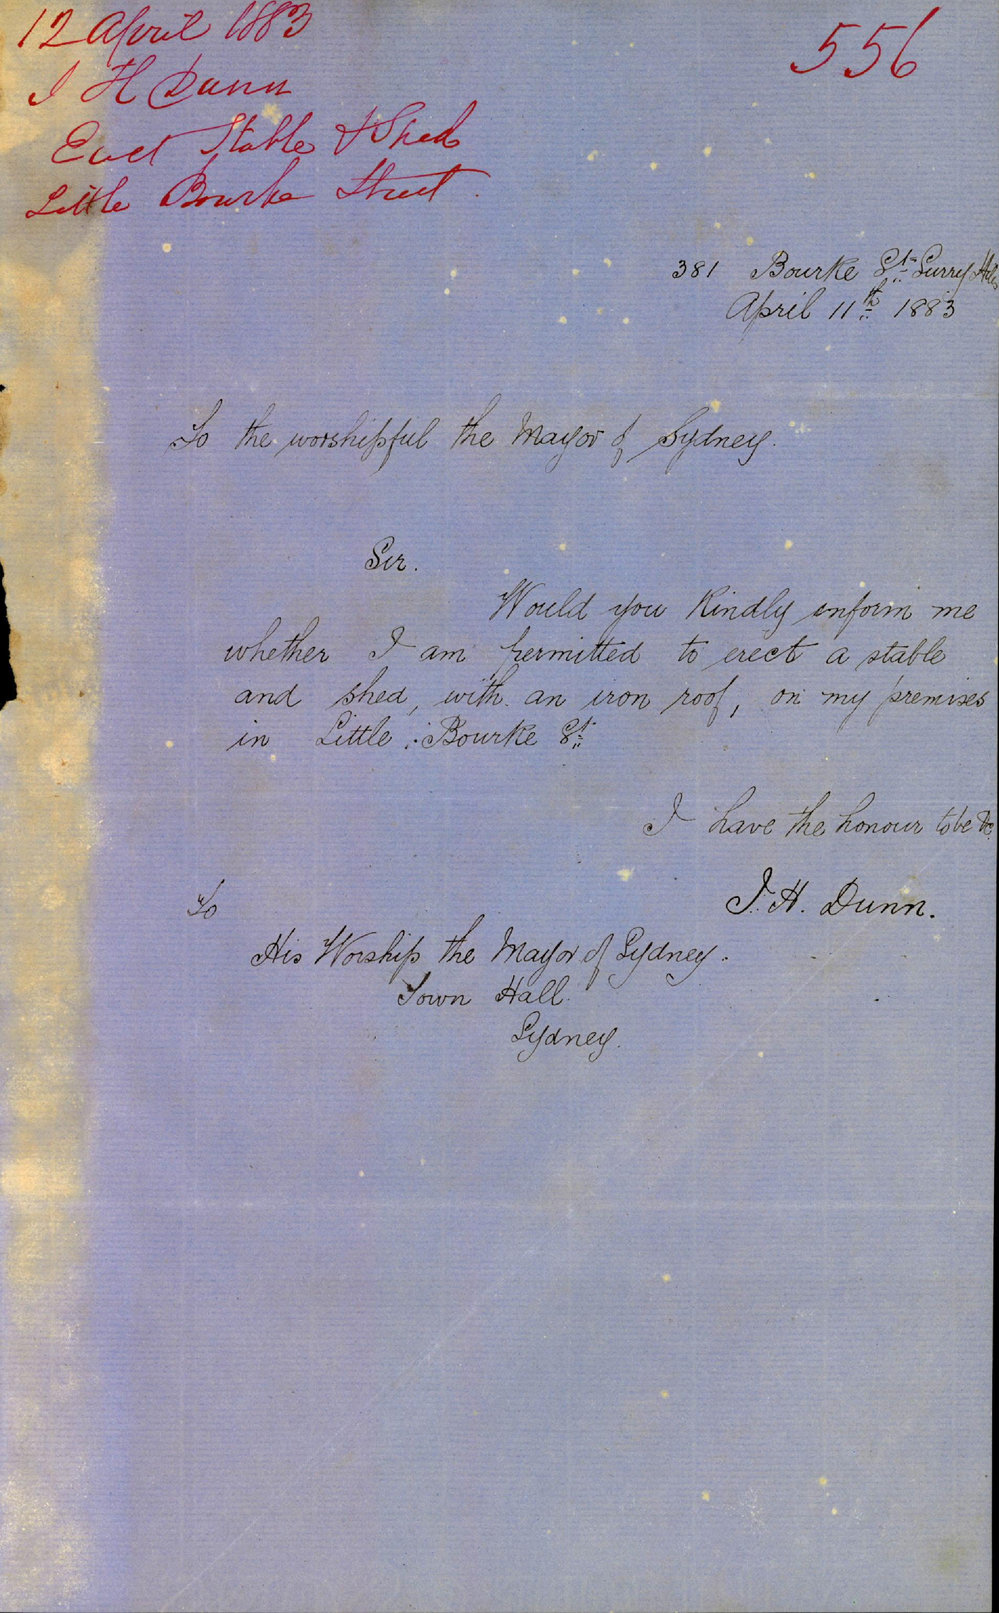 12 April 1883
J H Dunn
Erect Stable & Shed
Little Bourke Street
556
381 Bourke St. Surry Hills
April 11th 1883
To the worshipful the Mayor of Sydney.
Sir.
Would you kindly inform me
whether I am permitted to erect a stable
and shed, with an iron roof, on my premises
in Little Bourke St.
I have the honour to be &c.
J. H. Dunn.
To
His Worship the Mayor of Sydney.
Town Hall.
Sydney.